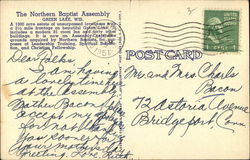 The Northern Baptist Assembly
GREEN LAKE, WIS.
A 1000 acre estate of unsurpassed loveliness with
a 2½ mile frontage on beautiful Green Lake.
Includes a modern 81 room Inn and sixty other
buildings. It is now an Assembly-Conference
grounds acquired by Northern Baptists for pur-
poses of Leadership Training, Spiritual Inspira-
tion, and Christian Fellowship.
POST CARD
Dear folks,
I am having
a lovely time
at the Assembly.
Mother Bacon, please
accept my
for not
you sooner for
your mother's
greeting.
Mr. and Mrs Charles
Bacon
72 Astoria Avenue
Bridgeport, Conn